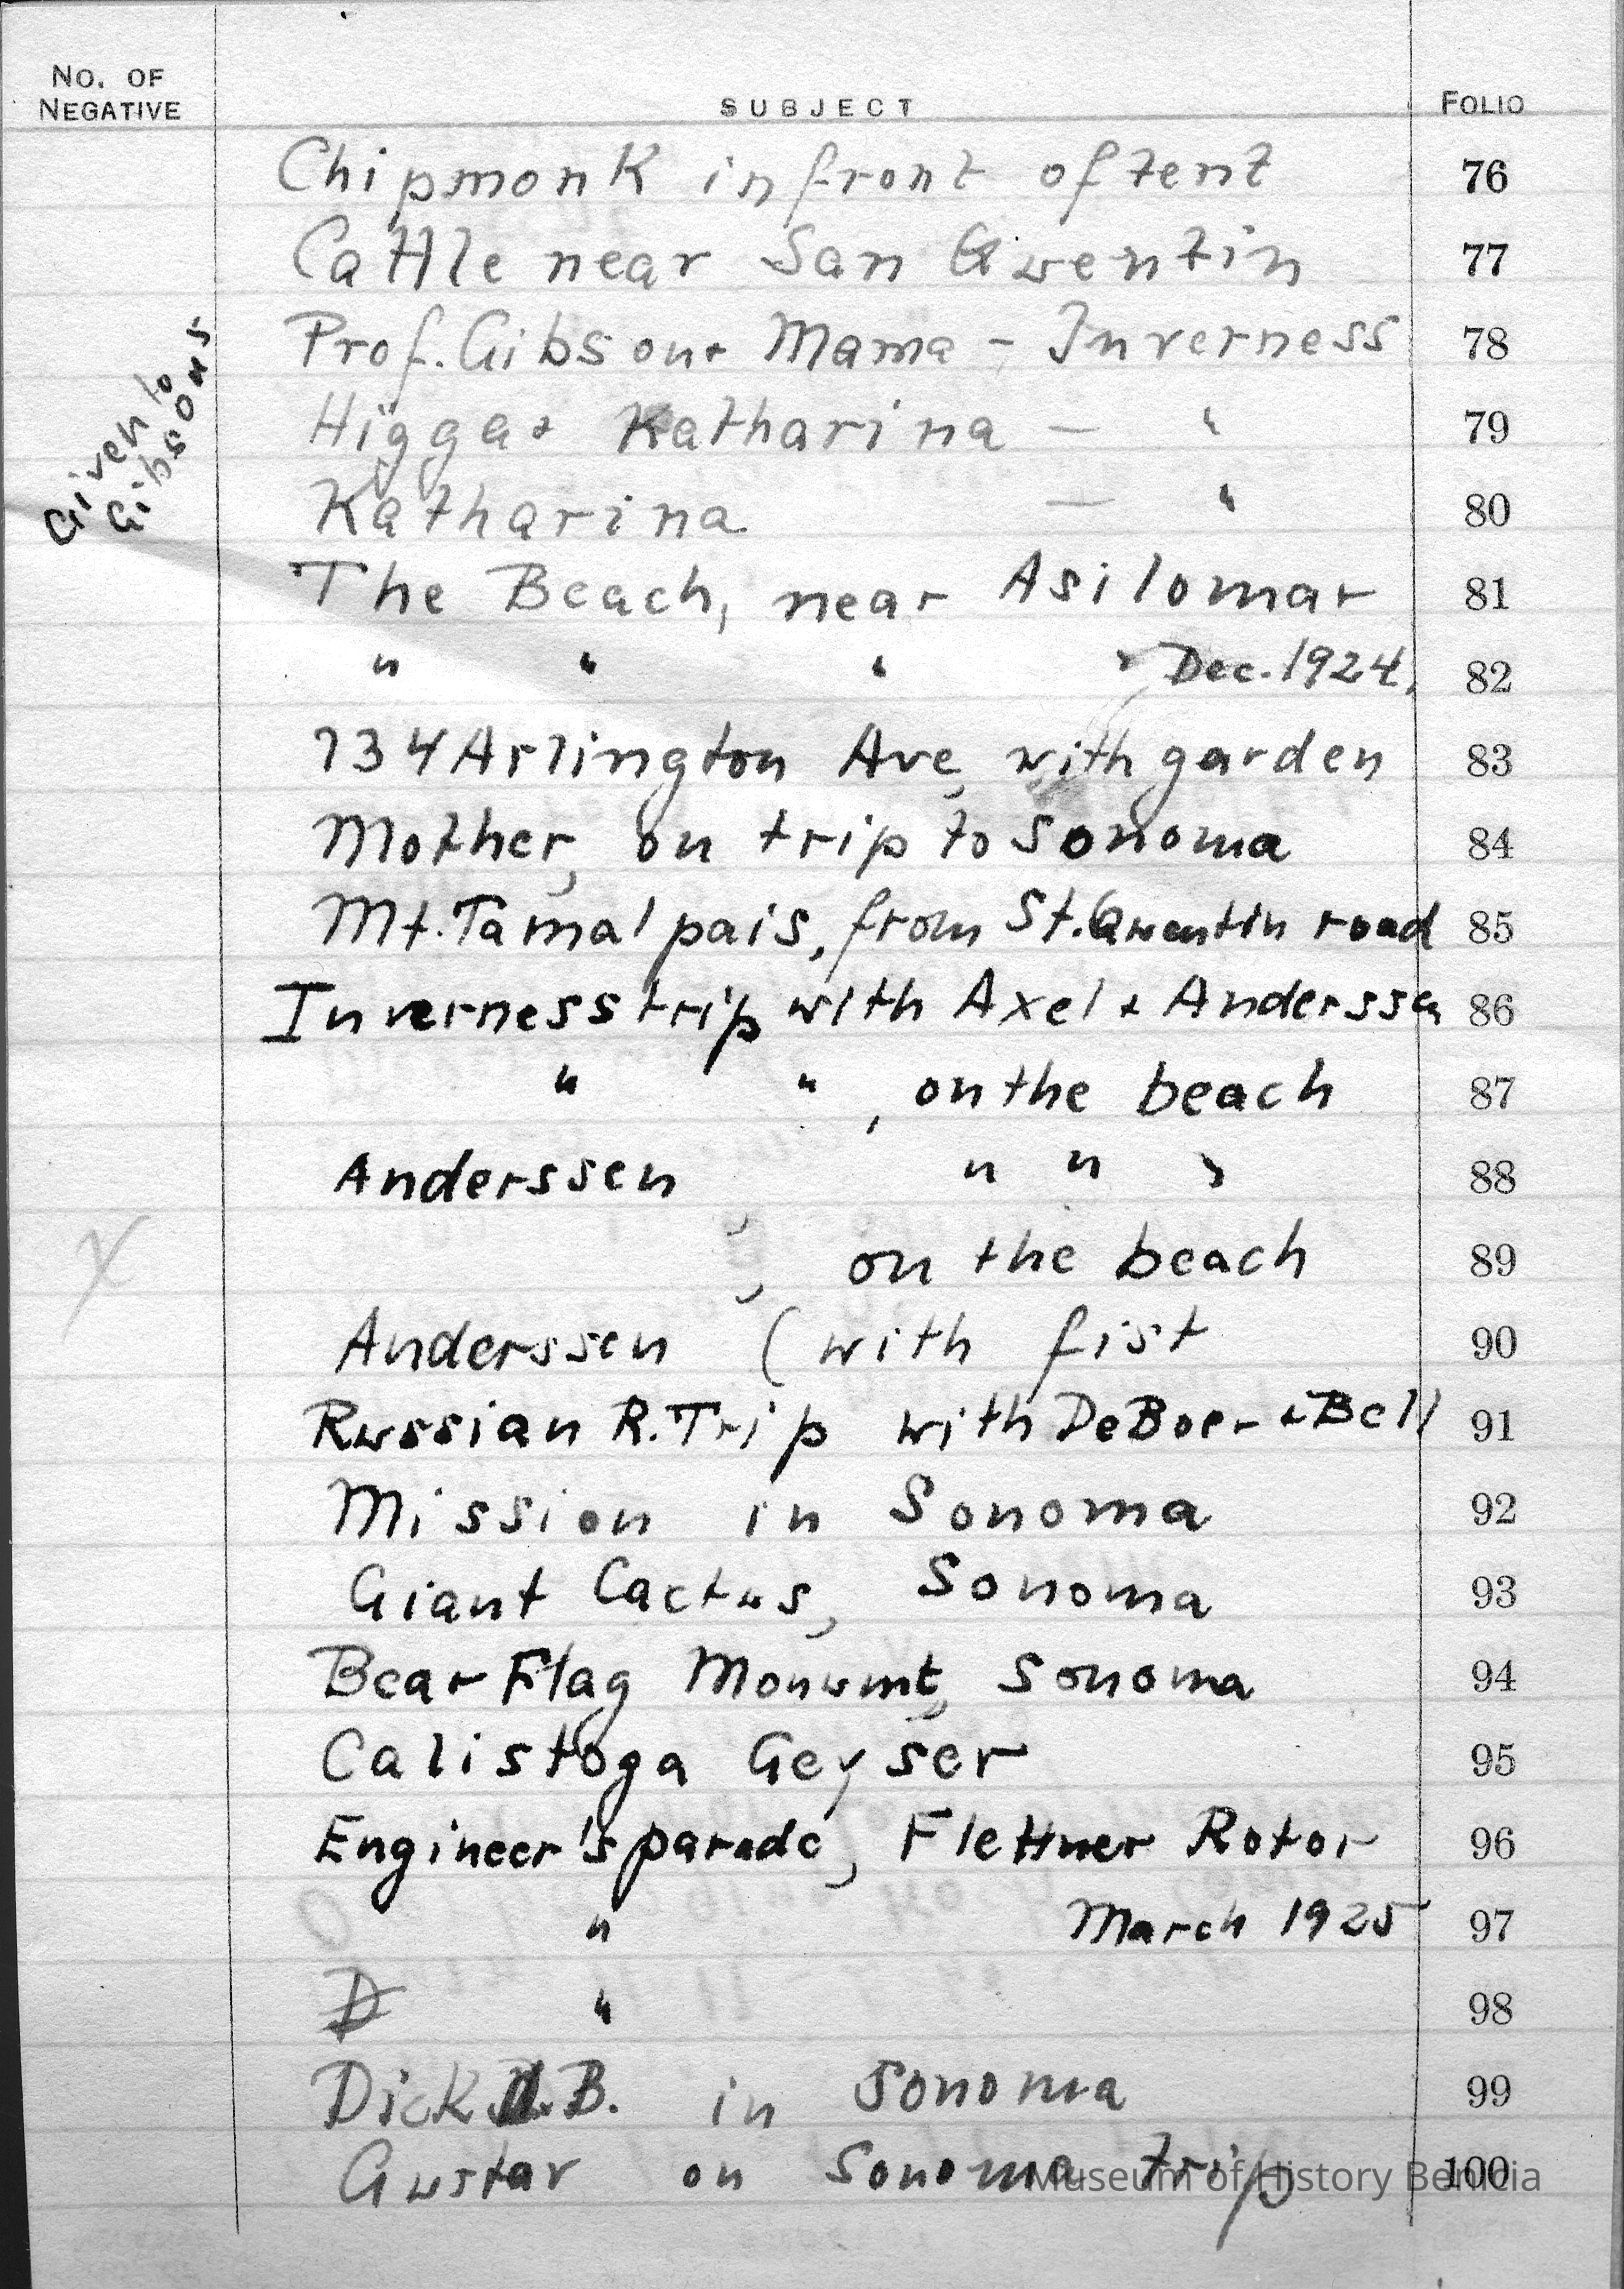 NO. OF NEGATIVE SUBJECT FOLIO
Chipmonk in front of tent 76
Cattle near San Quentin 77
Prof. Gibson + Mama - Inverness 78
Given to Gibsons
Higga + Katharina — " 79
Katharina — " 80
The Beach, near Asilomar 81
" " " " Dec. 1924. 82
734 Arlington Ave, with garden 83
Mother, on trip to Sonoma 84
Mt. Tamalpais, from St. Quentin road 85
Inverness trip with Axel + Anderssen 86
" " , on the beach 87
Anderssen " " " 88
X , on the beach 89
Anderssen (with fist 90
Russian R. Trip with DeBoer + Bell 91
Mission in Sonoma 92
Giant Cactus, Sonoma 93
Bear Flag Monumt, Sonoma 94
Calistoga Geyser 95
Engineer's parade, Flettner Rotor 96
" March 1925 97
D " 98
Dick B. in Sonoma 99
Gustav on Sonoma trip 100
Museum of History Benicia